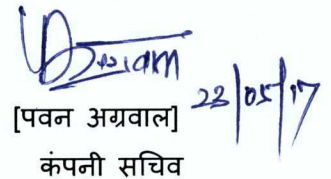 23/05/17
[पवन अग्रवाल]
कंपनी सचिव